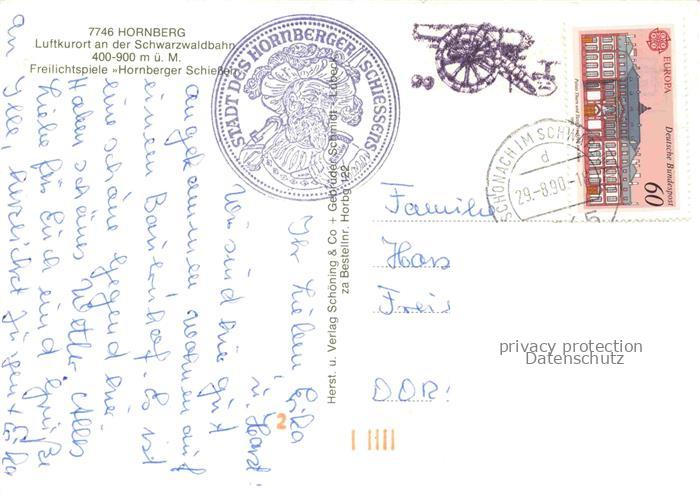 7746 HORNBERG
Luftkurort an der Schwarzwaldbahn
400-900 m ü. M.
Freilichtspiele »Hornberger Schießen«
STADT DES HORNBERGER SCHIESSENS
EUROPA
Deutsche Bundespost
60
SCHÖNACH IM SCHWARZWALD
d
29.-8.90.-1
Herst. u. Verlag Schöning & Co + Gebrüder Schmidt - Lübeck
za Bestellnr. Horbg 122
Ihr Lieben Erika
u. Horst
Wir sind hier gut
angekommen wohnen auf
einem Bauernhof. Es ist
eine schöne Gegend hier
Haben schönes Wetter. Alles
Liebe für Euch und Grüße
an Alle, herzlichst Jürgen + Erika
Familie
Hans
Freis
DDR!
privacy protection
Datenschutz
2